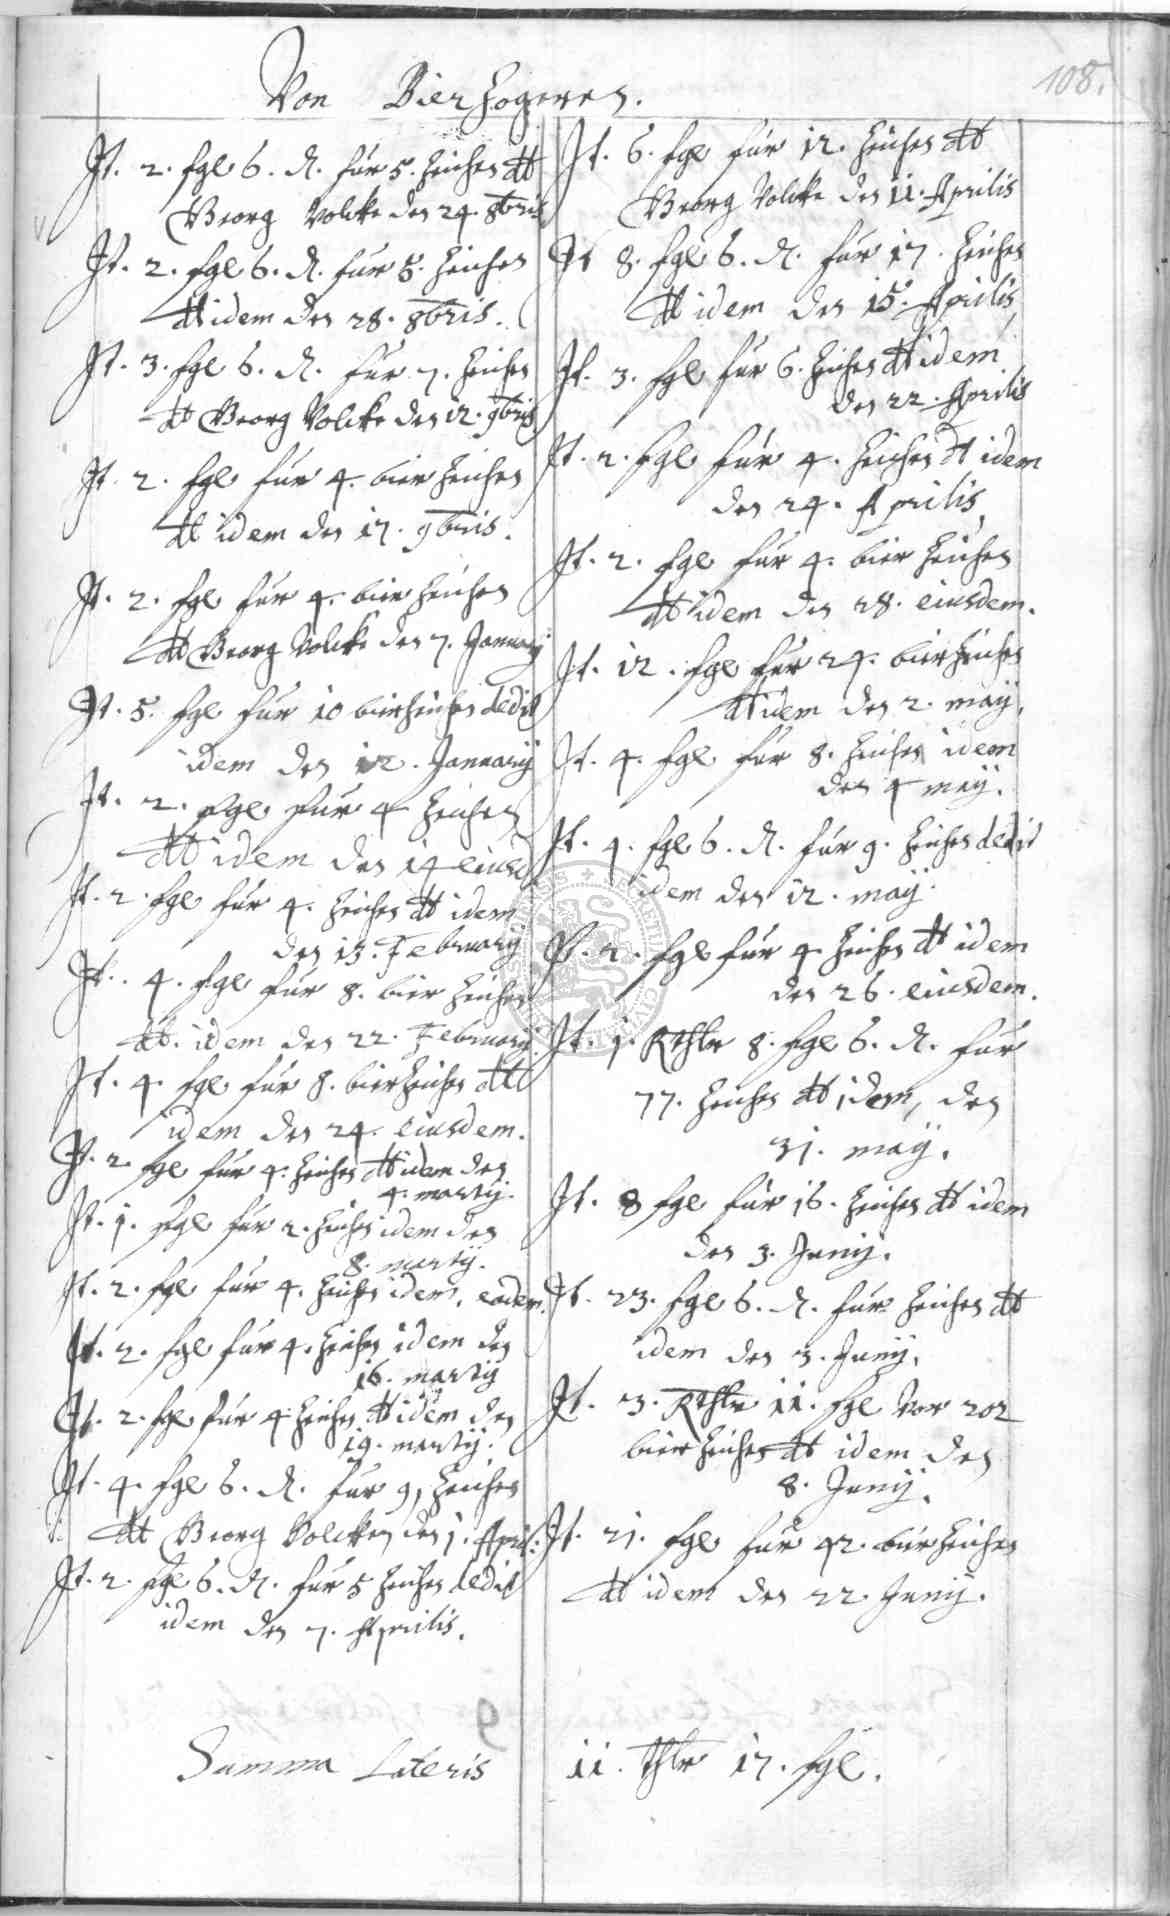 108.
Von Bierzogeren.
It. 2. sgl 6. d. fúr 5. Zeichen dt
Georg Volcke den 24. 8bris
It. 2. sgl 6. d. fúr 5. Zeichen
dt idem den 28. 8bris.
It. 3. sgl 6. d. fúr 7. Zeichen
dt Georg Volcke den 12. 9bris
It. 2. sgl fúr 4. bier Zeichen
dt idem den 17. 9bris.
It. 2. sgl fúr 4. bier Zeichen
dt Georg Volcke den 7. Januarij
It. 5. sgl fúr 10 bierzeichen dedit
idem den 12. Januarij
It. 2. sgl fúr 4 Zeichen
dt idem den 14 eiusd
It. 2. sgl fúr 4. Zeichen dt idem
den 13. Februarij
It. 4. sgl fúr 8. bier Zeichen
dt. idem den 22. Februarij
It. 4. sgl fúr 8. bierzeichen dt
idem den 24. eiusdem.
It. 2. sgl fúr 4. Zeichen dt idem den
4. martij.
It. 1. sgl fúr 2. Zeichen idem den
8. martij.
It. 2. sgl fúr 4. Zeichen idem, eodem.
It. 2. sgl fúr 4. Zeichen idem den
16. martij
It. 2. sgl fúr 4 Zeichen dt idem den
19. martij.
It. 4. sgl 6. d. fúr 9, Zeichen
dt Georg Volcken den 1. April:
It. 2. sgl 6. d. fúr 5 Zeichen dedit
idem den 7. Aprilis.
It. 6. sgl fúr 12. Zeichen dt
Georg Volcke den 11. Aprilis
It 8. sgl 6. d. fúr 17. Zeichen
dt idem den 15. Aprilis
It. 3. sgl fúr 6. Zeichen dt idem
den 22. Aprilis
It. 2. sgl fúr 4. Zeichen dt idem
den 24. Aprilis
It. 2. sgl fúr 4. bier Zeichen
dt idem den 28. eiusdem.
It. 12. sgl fúr 24. bierzeichen
dt idem den 2. maij.
It. 4. sgl fúr 8. Zeichen idem
den 4 maij.
It. 4. sgl 6. d. fúr 9. Zeichen dedit
idem den 12. maij.
It. 2. sgl fúr 4 Zeichen dt idem
den 26. eiusdem.
It. 1. Rthlr 8. sgl 6. d. fúr
77. Zeichen dt idem, den
31. maij.
It. 8 sgl fúr 16. Zeichen dt idem
den 3. Junij.
It. 23. sgl 6. d. fúr Zeichen dt
idem den 3. Junij.
It. 3. Rthlr 11. sgl vor 202
bier Zeichen dt idem den
8. Junij.
It. 21. sgl fúr 42. bierzeichen
dt idem den 22. Junij.
Summa Lateris 11. thlr 17. sgl.